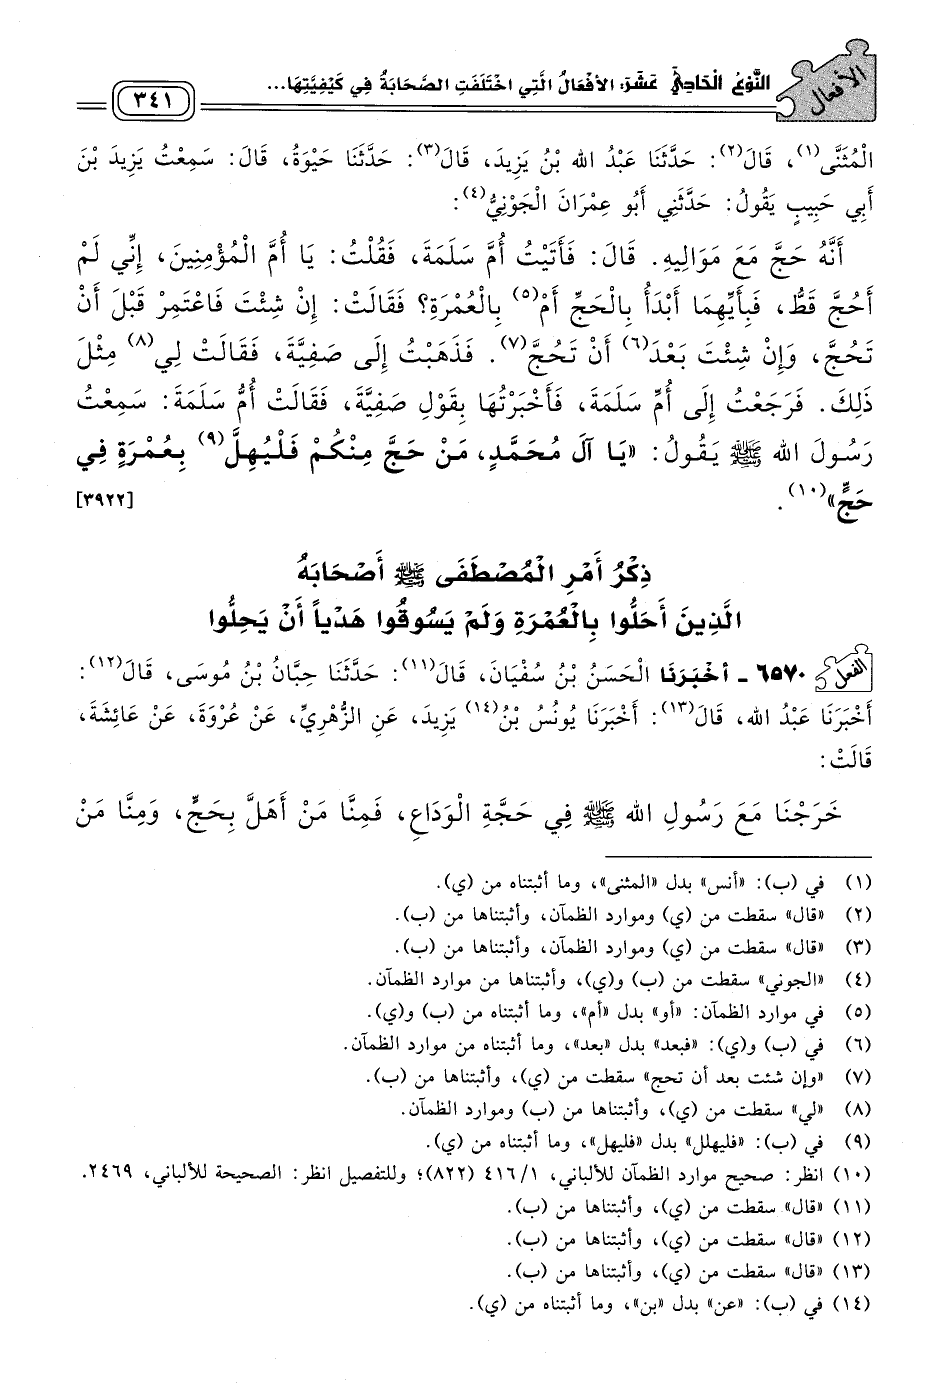 الأفعال
النَّوْعُ الْحَادِيَ عَشَرَ: الأَفْعَالُ الَّتِي اخْتَلَفَتِ الصَّحَابَةُ فِي كَيْفِيَّتِهَا...
٣٤١
الْمُثَنَّى(١)، قَالَ(٢): حَدَّثَنَا عَبْدُ الله بْنُ يَزِيدَ، قَالَ(٣): حَدَّثَنَا حَيْوَةُ، قَالَ: سَمِعْتُ يَزِيدَ بْنَ
أَبِي حَبِيبٍ يَقُولُ: حَدَّثَنِي أَبُو عِمْرَانَ الْجَوْنِيُّ(٤):
أَنَّهُ حَجَّ مَعَ مَوَالِيهِ. قَالَ: فَأَتَيْتُ أُمَّ سَلَمَةَ، فَقُلْتُ: يَا أُمَّ الْمُؤْمِنِينَ، إِنِّي لَمْ
أَحُجَّ قَطُّ، فَبِأَيِّهِمَا أَبْدَأُ بِالْحَجِّ أَمْ(٥) بِالْعُمْرَةِ؟ فَقَالَتْ: إِنْ شِئْتَ فَاعْتَمِرْ قَبْلَ أَنْ
تَحُجَّ، وَإِنْ شِئْتَ بَعْدَ(٦) أَنْ تَحُجَّ(٧). فَذَهَبْتُ إِلَى صَفِيَّةَ، فَقَالَتْ لِي(٨) مِثْلَ
ذَلِكَ. فَرَجَعْتُ إِلَى أُمِّ سَلَمَةَ، فَأَخْبَرْتُهَا بِقَوْلِ صَفِيَّةَ، فَقَالَتْ أُمُّ سَلَمَةَ: سَمِعْتُ
رَسُولَ الله ﷺ يَقُولُ: «يَا آلَ مُحَمَّدٍ، مَنْ حَجَّ مِنْكُمْ فَلْيُهِلَّ(٩) بِعُمْرَةٍ فِي
حَجٍّ»(١٠). [٣٩٢٢]
ذِكْرُ أَمْرِ الْمُصْطَفَى ﷺ أَصْحَابَهُ
الَّذِينَ أَحَلُّوا بِالْعُمْرَةِ وَلَمْ يَسُوقُوا هَدْياً أَنْ يَحِلُّوا
الفعل ٦٥٧٠ - أَخْبَرَنَا الْحَسَنُ بْنُ سُفْيَانَ، قَالَ(١١): حَدَّثَنَا حِبَّانُ بْنُ مُوسَى، قَالَ(١٢):
أَخْبَرَنَا عَبْدُ الله، قَالَ(١٣): أَخْبَرَنَا يُونُسُ بْنُ(١٤) يَزِيدَ، عَنِ الزُّهْرِيِّ، عَنْ عُرْوَةَ، عَنْ عَائِشَةَ،
قَالَتْ:
خَرَجْنَا مَعَ رَسُولِ الله ﷺ فِي حَجَّةِ الْوَدَاعِ، فَمِنَّا مَنْ أَهَلَّ بِحَجٍّ، وَمِنَّا مَنْ
(١) في (ب): «أنس» بدل «المثنى»، وما أثبتناه من (ي).
(٢) «قال» سقطت من (ي) وموارد الظمآن، وأثبتناها من (ب).
(٣) «قال» سقطت من (ي) وموارد الظمآن، وأثبتناها من (ب).
(٤) «الجوني» سقطت من (ب) و(ي)، وأثبتناها من موارد الظمآن.
(٥) في موارد الظمآن: «أو» بدل «أم»، وما أثبتناه من (ب) و(ي).
(٦) في (ب) و(ي): «فبعد» بدل «بعد»، وما أثبتناه من موارد الظمآن.
(٧) «وإن شئت بعد أن تحج» سقطت من (ي)، وأثبتناها من (ب).
(٨) «لي» سقطت من (ي)، وأثبتناها من (ب) وموارد الظمآن.
(٩) في (ب): «فليهلل» بدل «فليهل»، وما أثبتناه من (ي).
(١٠) انظر: صحيح موارد الظمآن للألباني، ٤١٦/١ (٨٢٢)؛ وللتفصيل انظر: الصحيحة للألباني، ٢٤٦٩.
(١١) «قال» سقطت من (ي)، وأثبتناها من (ب).
(١٢) «قال» سقطت من (ي)، وأثبتناها من (ب).
(١٣) «قال» سقطت من (ي)، وأثبتناها من (ب).
(١٤) في (ب): «عن» بدل «بن»، وما أثبتناه من (ي).